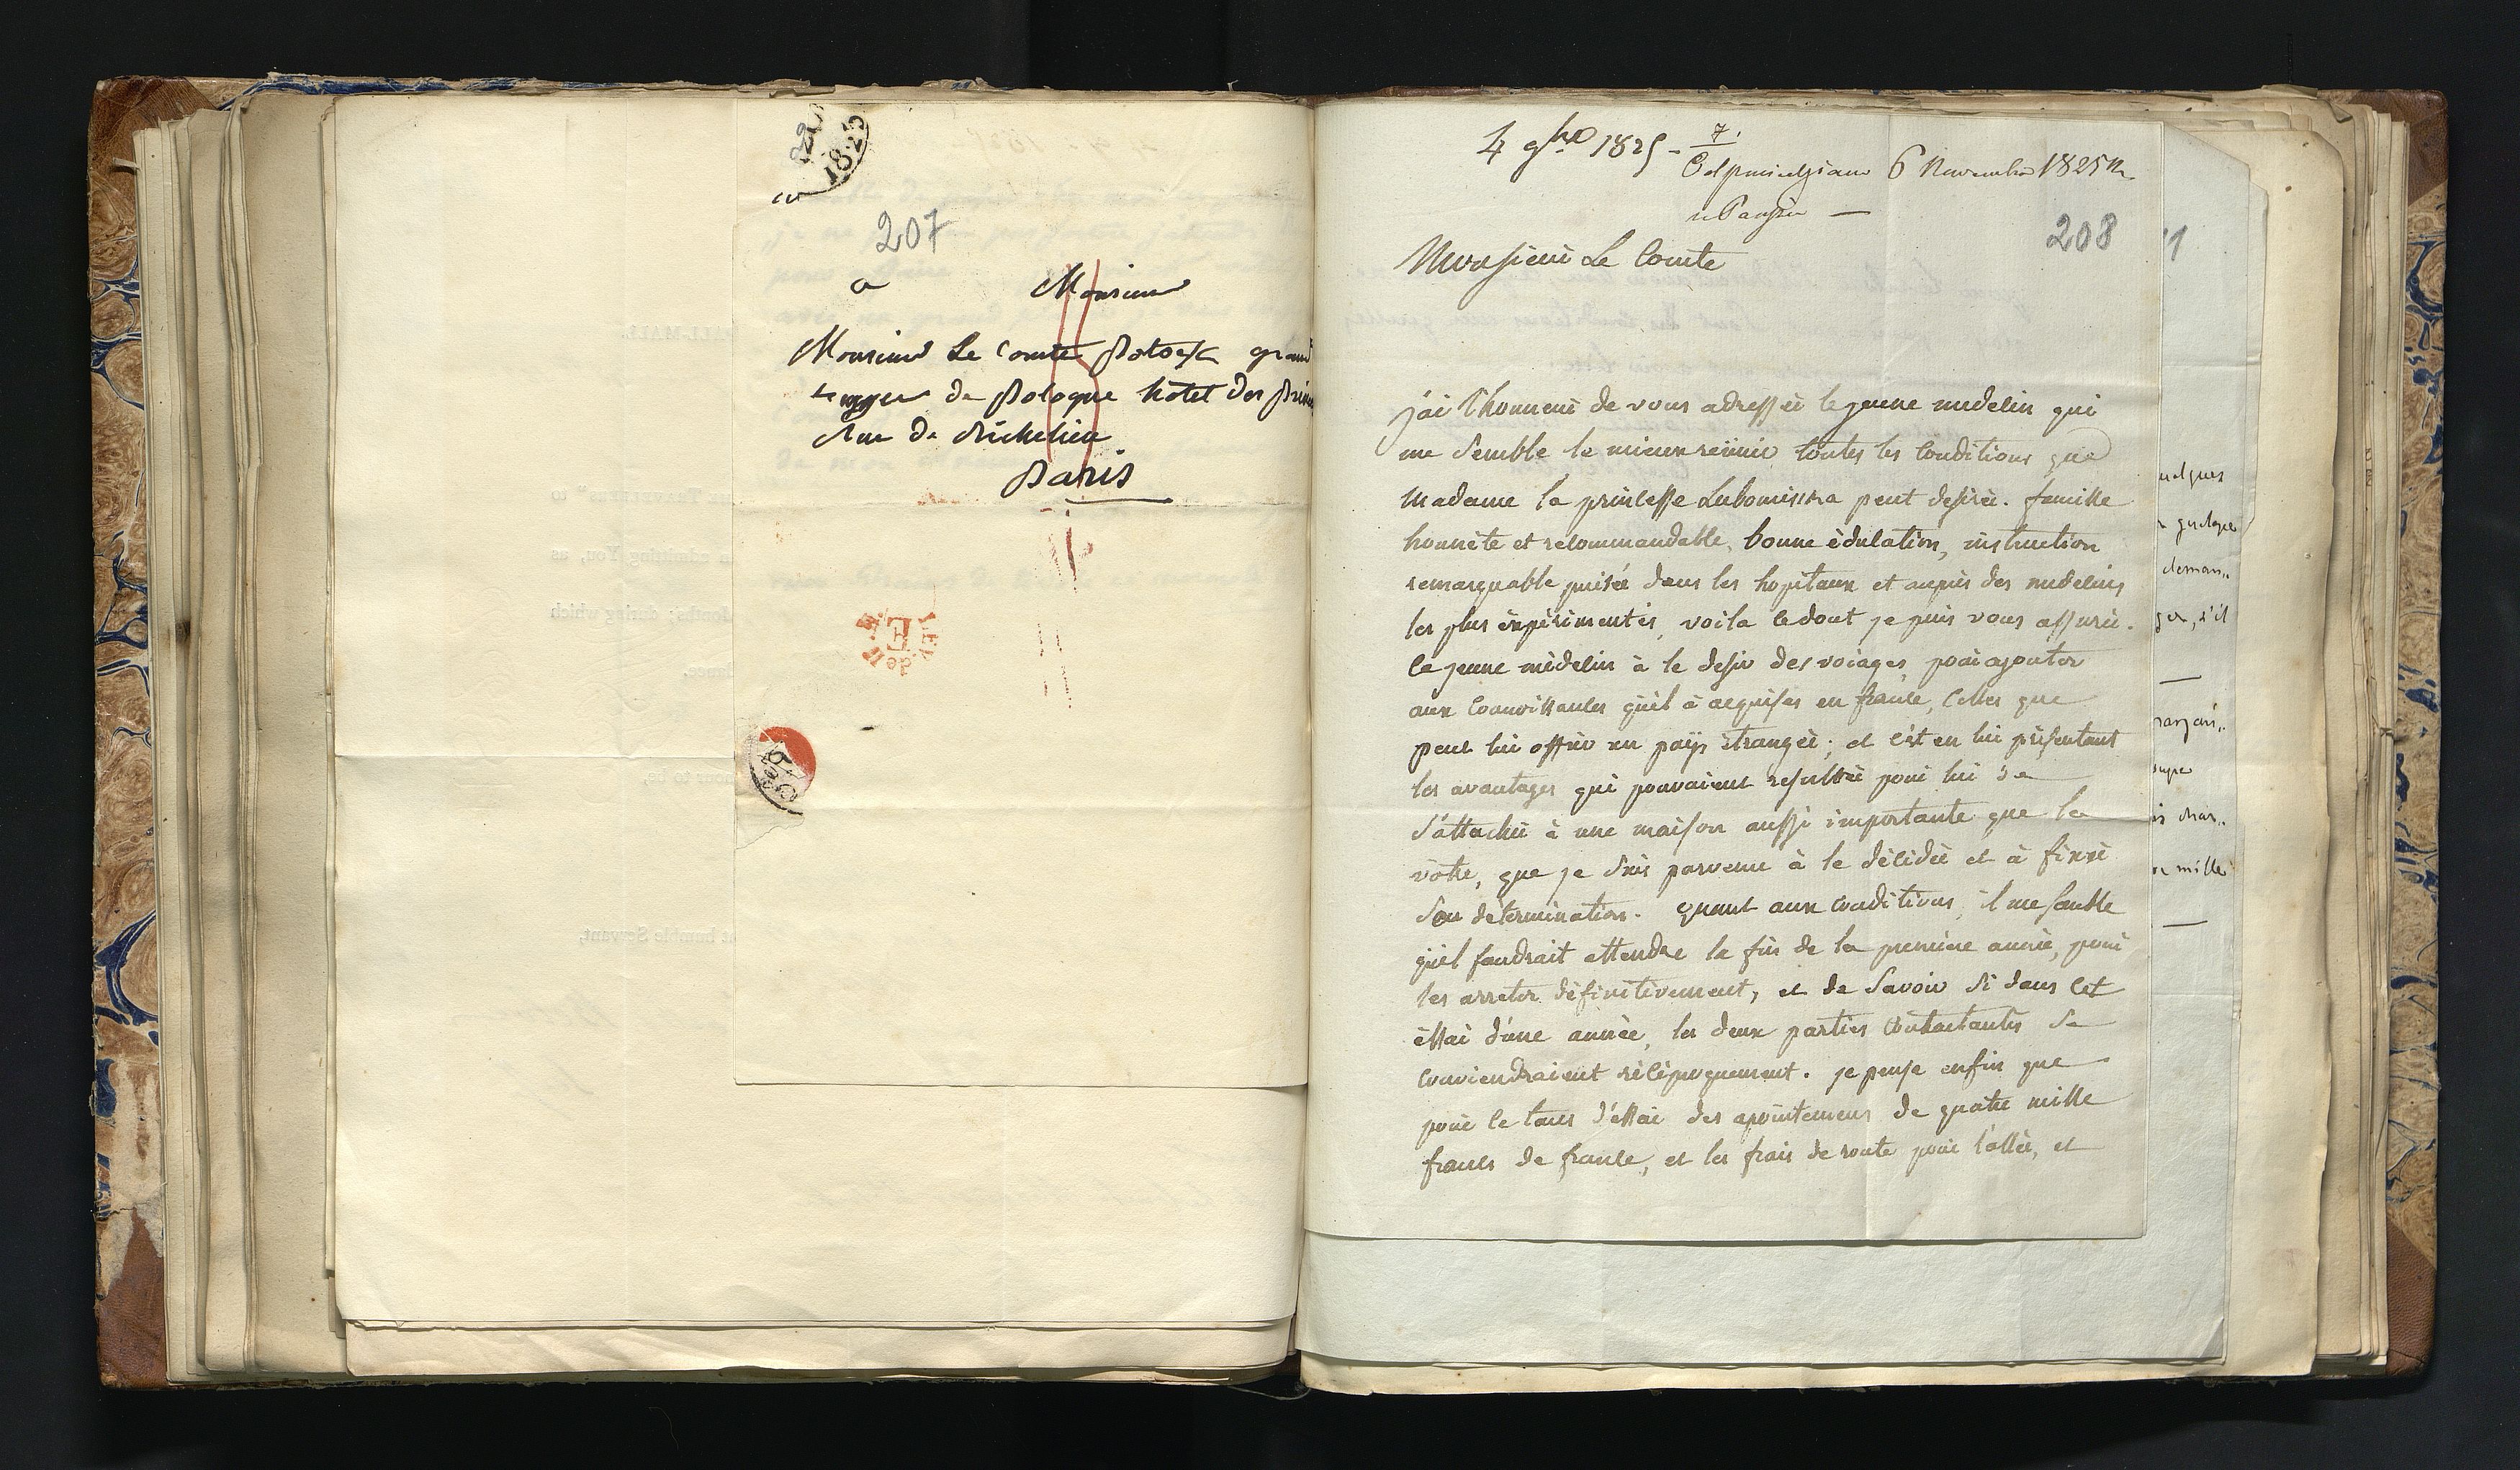 1825
207
a Monsieur
Monsieur Le Comte Potocki grand
de Pologne hôtel des Prin
Rue de Richelieu
Paris
4 9bre 1825 - 7.
Odpowiedziano 6 Novembra 1825 R.
w Paryżu —
208
Monsieur Le Comte
j'ai l'honneur de vous adresser le jeune medecin qui
me semble le mieux reünir toutes les conditions que
Madame la princesse Lubomirska peut desirer. famille
honnête et recommandable, bonne èducation, instruction
remarquable puisée dans les hopitaux et auprès des medecins
les plus èxpèrimentés, voila ce dont je puis vous assurer.
ce jeune mèdecin à le desir des voiages, pour ajouter
aux connoissances qu'il à acquises en france, celles que
peut lui offrir un païs étranger; et c'est en lui présentant
les avantages qui pouvaient resulter pour lui de
s'attacher à une maison aussi importante que la
vôtre, que je suis parvenu à le décider et à fixer
son determination. quant aux conditions, il me semble
qu'il faudrait attendre la fin de la première année, pour
les arreter dèfinitivement, et de savoir si dans cet
èssai d'une année, les deux parties contractantes se
conviendraient réciproquement. je pense enfin que
pour ce tems d'èssai des apointemens de quatre mille
francs de france, et les frais de route pour l'aller, et
uelques
quelque
deman„
ger, s'il
mille